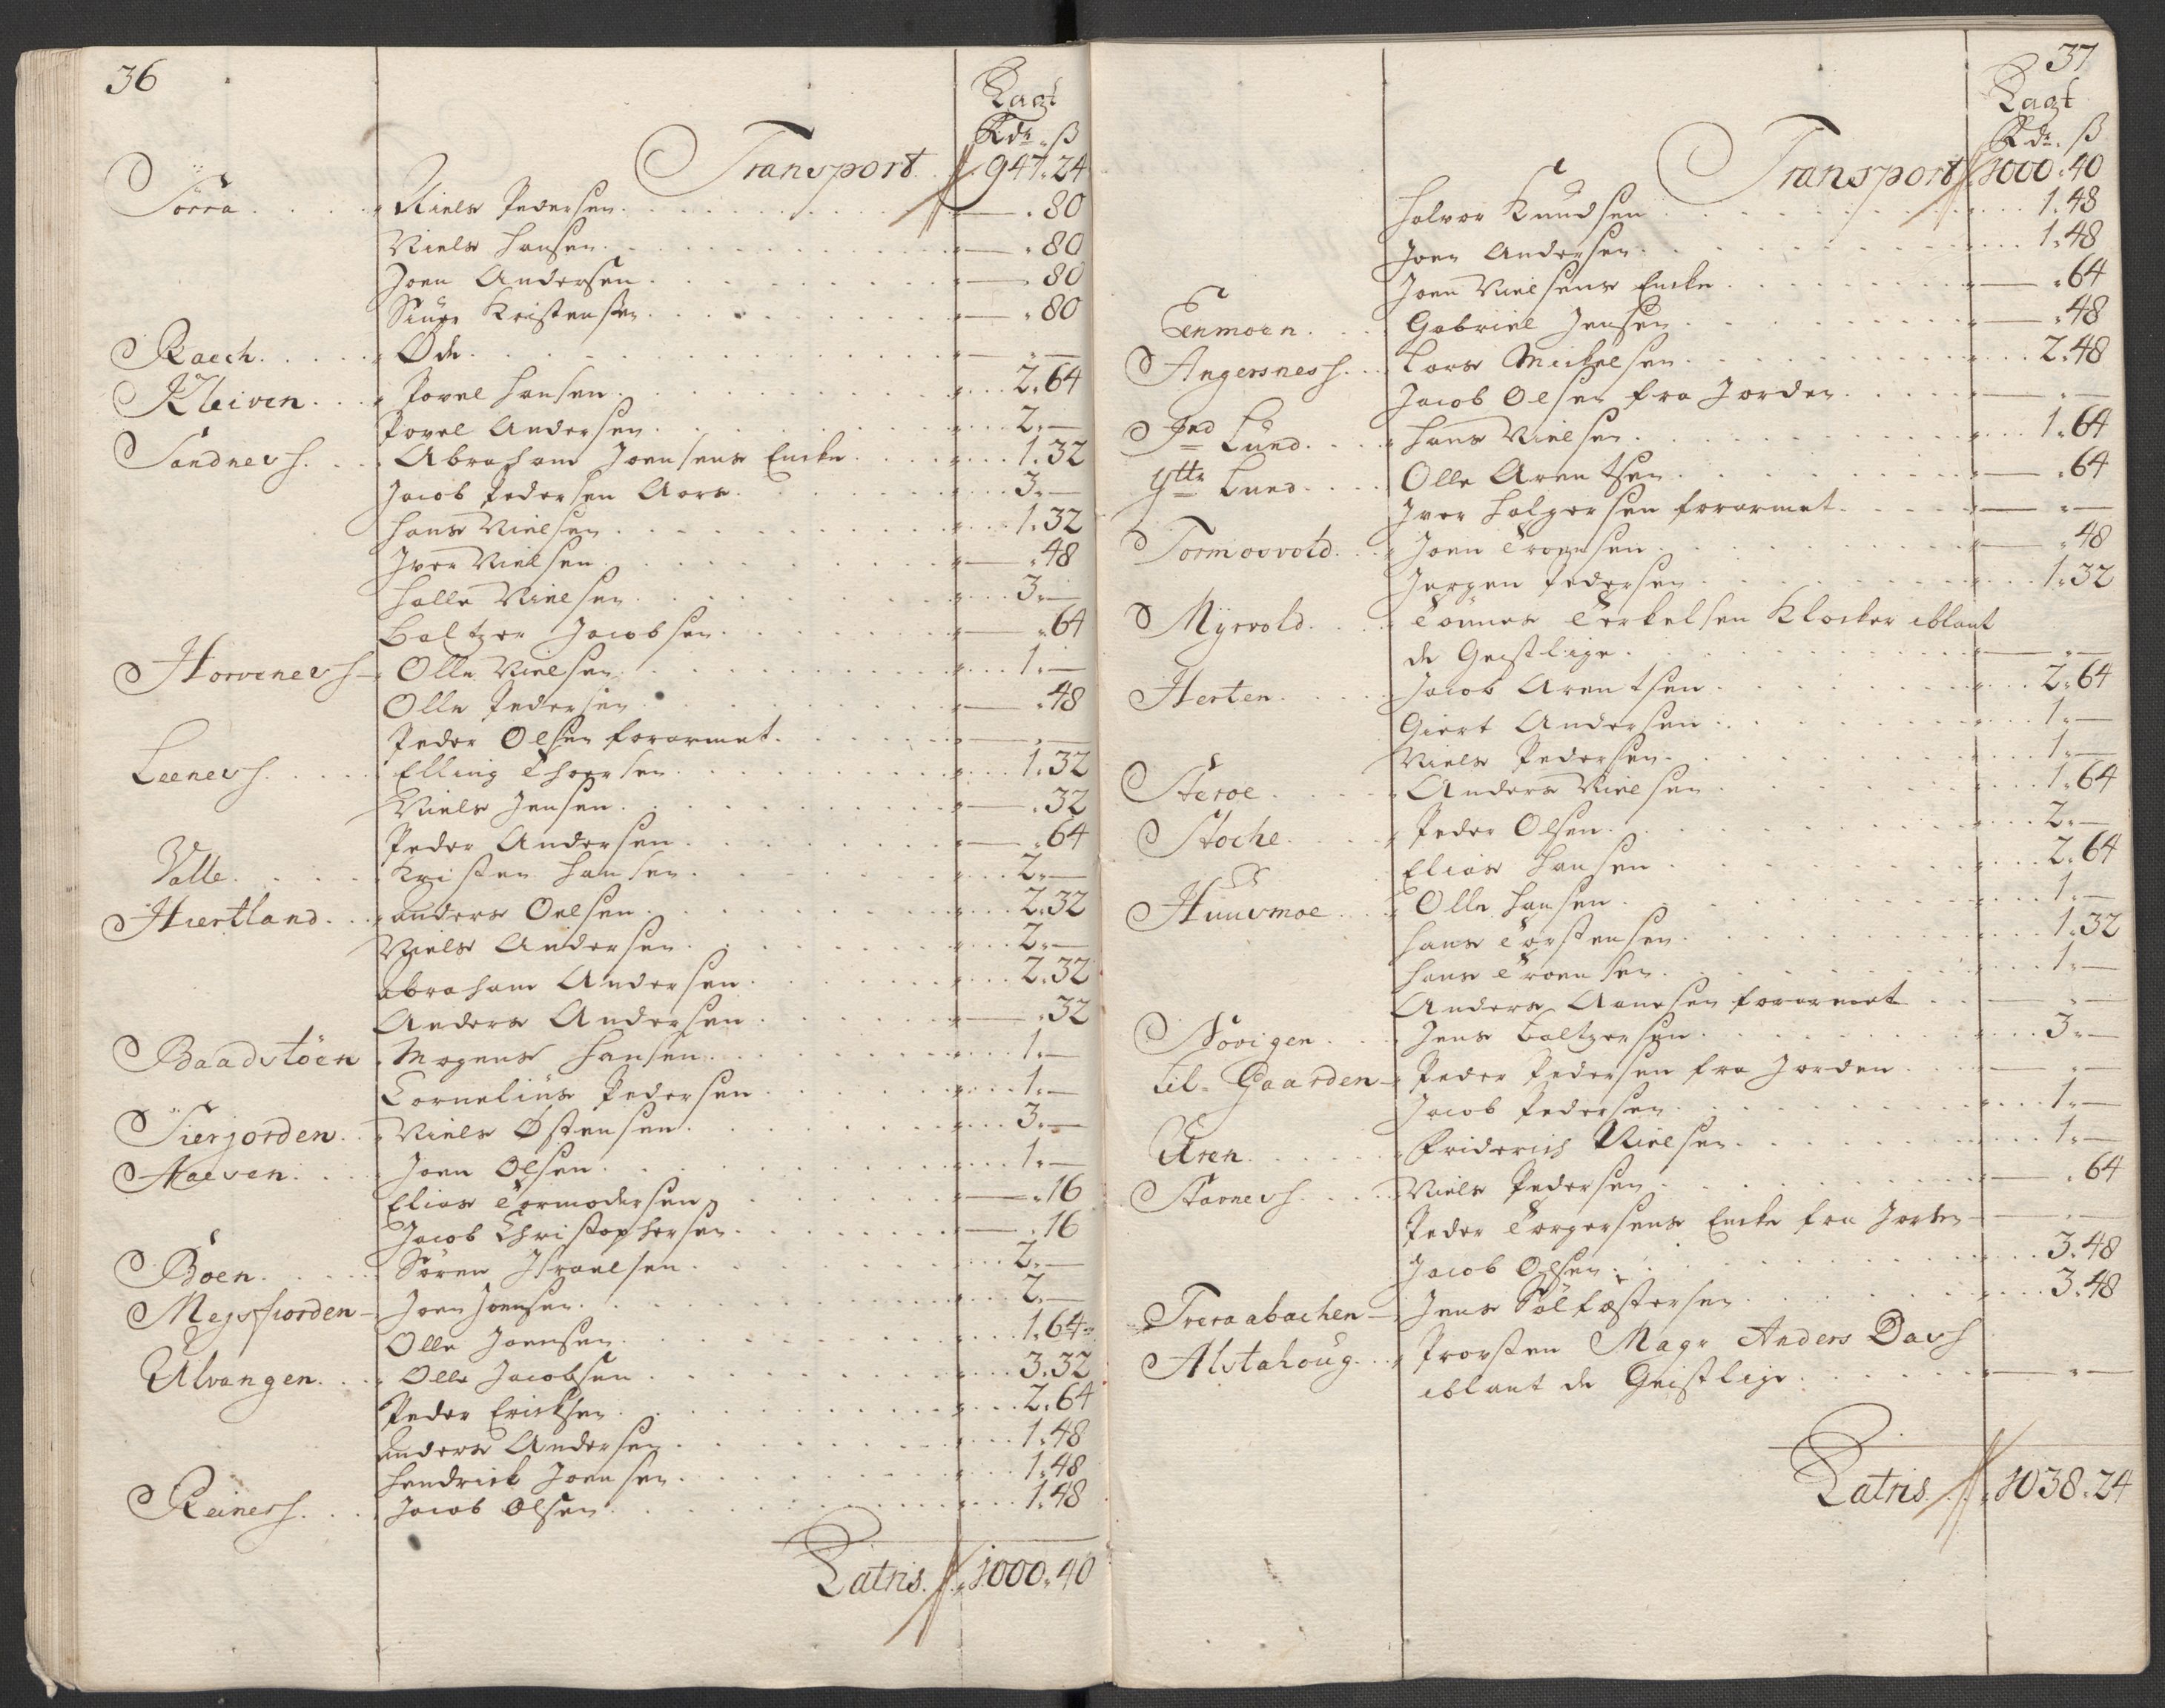 36
Lagt
Rdr. ß
Transport. 947.24
Torra. Niels Pedersen. - . 80
Niels Hansen. - . 80
Joen Andersen. - . 80
Siüge Kristensen. - . 80
Raech. Öde. - . -
Kleiven. Povel Hansen. 2. 64
Povel Andersen. 2. -
Sandnesh. Abraham Joensens Encke. 1. 32
Jacob Pedersen Aars. 3. -
Hans Nielsen. 1. 32
Iver Nielsen. - . 48
Halle Nielsen. 3. -
Baltzer Jacobsen. - . 64
Horvenesh - Olle Nielsen. 1. -
Olle Pedersen. - . 48
Peder Olsen forarmet. - . -
Leenesh. Elling Thoersen. 1. 32
Niels Jensen. - . 32
Peder Andersen. - . 64
Valle. Kristen Hansen. 2. -
Hiertland. Anders Oelsen. 2. 32
Niels Andersen. 2. -
Abraham Andersen. 2. 32
Anders Andersen. - . 32
Baadstöen. Mogens Hansen. 1. -
Cornelius Pedersen. 1. -
Tierjorden. Niels Østensen. 3. -
Haeven. Joen Olsen. 1. -
Elias Tormodersen. - . 16
Jacob Christophersen. - . 16
Boen. Søren Israelsen. 2. -
Mejsfiorden - Joen Joensen. 2. -
Olle Joensen. 1. 64
Ulvangen. Olle Jacobsen. 3. 32
Peder Ericksen. 2. 64
Anders Andersen. 1. 48
Hendrick Joensen. 1. 48
Reinesh. Jacob Olsen. 1. 48
Latris. 1000. 40
37
Lagt
Rdr. ß
Transport 1000. 40
Halvor Knudsen. 1. 48
Joen Andersen. 1. 48
Joen Nielsens Encke. - . 64
Eenmoen. Gabriel Jensen. - . 48
Angersnesh. Lars Mickelsen. 2. 48
Jacob Olsen fra Jorden. - . -
Ind Lund. Hans Nielsen. 1. 64
Yttr Lund. Olle Arentsen. - . 64
Iver Holgersen forarmet. - . -
Tormosvold. Joen Troensen. - . 48
Jørgen Pedersen. 1. 32
Myrvold. Tönnes Terkelsen Klocker iblant
de Geistlige. - . -
Herten. Jacob Arentsen. 2. 64
Giert Andersen. 1. -
Niels Pedersen. 1. -
Steroe. Anders Nielsen. 1. 64
Stoche. Peder Olsen. 2. -
Elias Hansen. 2. 64
Huusmoe. Olle Hansen. 1. -
Hans Torstensen. 1. 32
Hans Troensen. 1. -
Anders Aanesen forarmet - . -
Novigen. Jens Baltzersen. 3. -
Lil- Gaarden - Peder Pedersen fra Jorden. - . -
Jacob Pedersen. 1. -
Uren. Friderich Nielsen. 1. -
Starnesh. Niels Pedersen. - . 64
Peder Torgersens Encke fra Jorden - . -
Jacob Olsen. 3. 48
Treraabachen - Jens Sölfæstersen. 3. 48
Alstahoug. Provsten Magr Anders Dash
iblant de Geistlige. - . -
Latris. 1038. 24